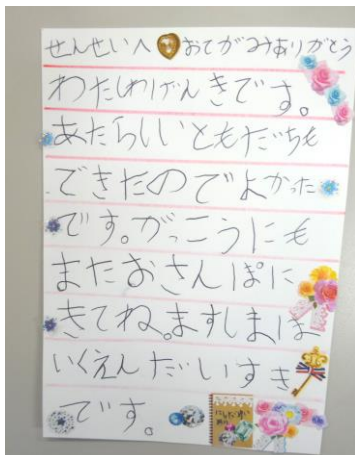 せんせいへ おてがみありがとう
わたしわげんきです。
あたらしいともだちも
できたのでよかった
です。がっこうにも
またおさんぽに
きてね。ますしまほ
いくえんだいすき
です。